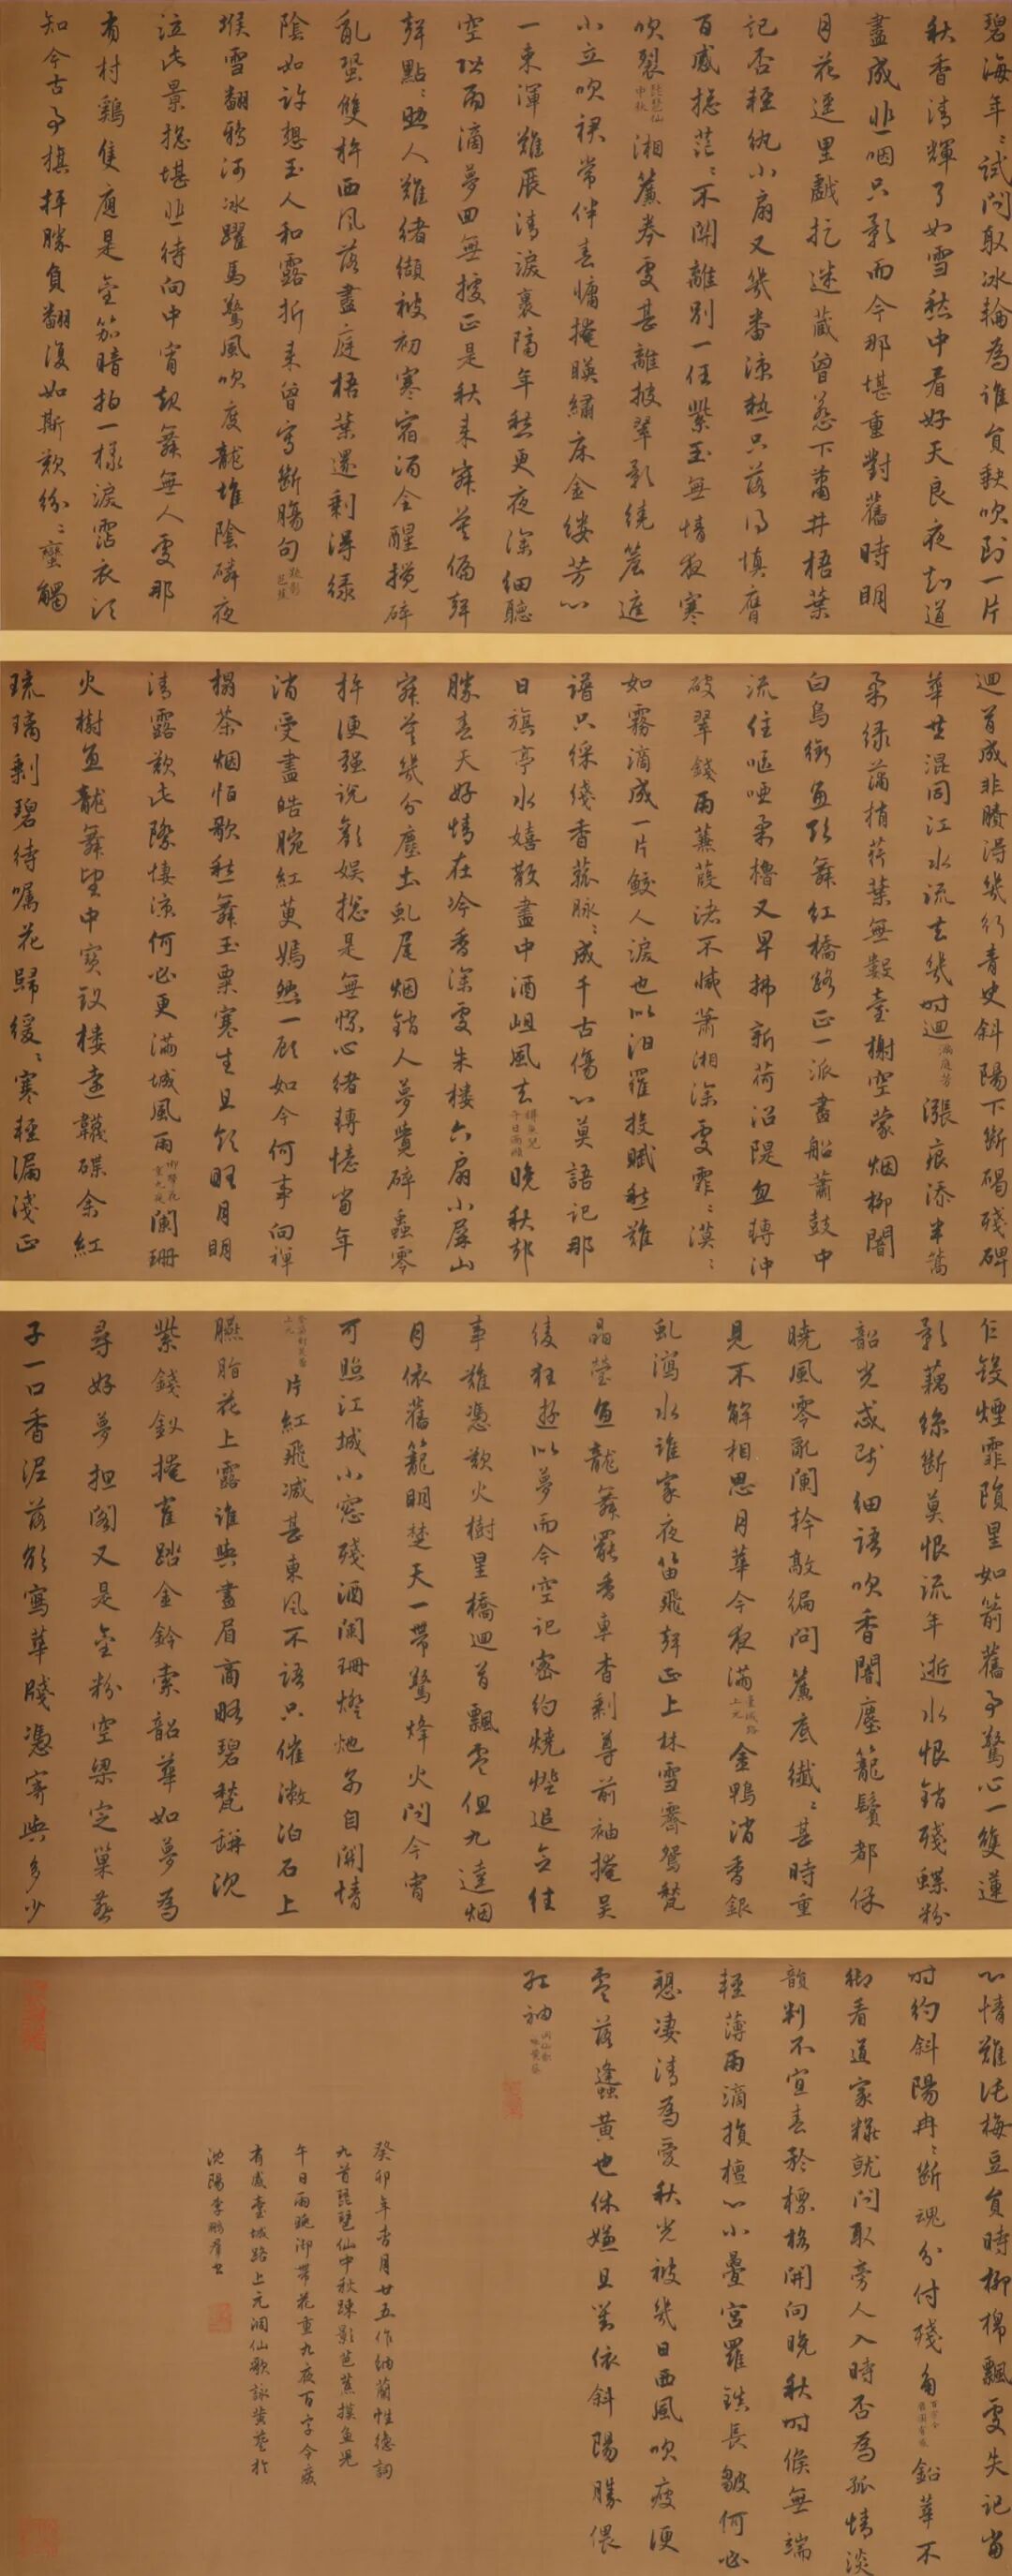 碧海年〻試問取冰輪為誰負缺吹到一片
秋香清輝了如雪愁中看好天良夜知道
盡成悲咽只影而今那堪重對舊時明
月花逕里戲捉迷藏曾惹下蕭井梧葉
記否輕紈小扇又幾番涼熱只落得填膺
百感總茫〻不關離別一任紫玉無情夜寒
吹裂 琵琶仙中秋 湘簾卷處甚離披翠影繞簷遮
小立吹裙常伴春慵掩映繡床金縷芳心
一束渾難展清淚裏隔年愁更夜深細聽
空階雨滴夢回無據正是秋來寂寞偏聲
聲點〻助人難緒纈被初寒宿酒全醒攪碎
亂蛩雙杵西風落盡庭梧葉還剩得綠
陰如許想玉人和露折來曾寫斷腸句 疎影芭蕉
堠雪翻鴉河冰躍馬驚風吹度龍堆陰磷夜
泣此景總堪悲待向中宵起舞無人處那
有村鷄隻應是金笳暗拍一樣淚霑衣須
知今古事棋枰勝負翻復如斯歎紛〻蠻觸
迴首成非賸得幾行青史斜陽下斷碣殘碑
華共混同江水流去幾时迴 滿庭芳 漲痕添半篙
柔綠蒲梢荇葉無數臺榭空蒙烟柳闇
白鳥銜魚欲舞紅橋路正一派畫船蕭鼓中
流住嘔啞柔櫓又早拂新荷沿隄忽轉沖
破翠錢雨蒹葭渚不減蕭湘深處霏〻漠〻
如霧滴成一片鮫人淚也似汨羅投賦愁難
譜只綵綫香菰脉〻成千古傷心莫語記那
日旗亭水嬉散盡中酒阻風去 摸魚兒午日雨眺 晚秋卻
勝春天好情在冷香深處朱樓六扇小屏山
寂寞幾分塵土虬尾烟銷人夢覺碎蟲零
杵便强说歡娛總是無憀心緒轉憶當年
消受盡皓腕紅萸嫣然一顧如今何事向禪
榻茶烟怕歌愁舞玉粟寒生且領略月明
清露歎此際悽涼何必更滿城風雨 御帶花重九夜 闌珊
火樹魚龍舞望中寶釵樓遠靺鞨余紅
琉璃剩碧待囑花歸緩〻寒輕漏淺正
乍斂煙霏隕星如箭舊事驚心一雙蓮
影藕絲斷莫恨流年逝水恨銷殘蝶粉
韶光忒賤細語吹香闇塵籠鬢都似
曉風零亂闌幹敲徧問簾底纖〻甚時重
見不解相思月華今夜滿 臺城路上元 金鴨消香銀
虬瀉水誰家夜笛飛聲正上林雪霽鴛甃
晶瑩魚龍舞罷香車杳剩尊前袖掩吳
綾狂遊似夢而今空記密約燒燈追念往
事難憑歎火樹星橋迴首飄零但九逵烟
月依舊籠明楚天一帶驚烽火問今宵
可照江城小窓殘酒闌珊燈灺別自關情
金菊對芙蓉上元 片紅飛減甚東風不語只催漂泊石上
臙脂花上露誰與畫眉商略碧甃瓶沉
紫錢釵掩雀踏金鈴索韶華如夢為
尋好夢担閣又是金粉空梁定巢燕
子一口香泥落欲寫華牋憑寄與多少
心情難託梅豆負時柳棉飄處失記當
时約斜陽冉〻斷魂分付殘角 百字令廢園有感 鉛華不
御看道家糚就問取旁人入時否為孤情淡
韻判不宜春矜標格開向晚秋时候無端
輕薄雨滴損檀心小疊宮羅鎮長皺何必
愬淒清為愛秋光被幾日西風吹瘦便
零落蜂黃也休嫌且對依斜陽勝偎
紅袖 洞仙歌咏黃葵
癸卯年杏月廿五作納蘭性德詞
九首琵琶仙中秋疎影芭蕉摸魚兒
午日雨眺御帶花重九夜百字令廢
有感臺城路上元洞仙歌詠黃葵於
沈陽李鵬君書